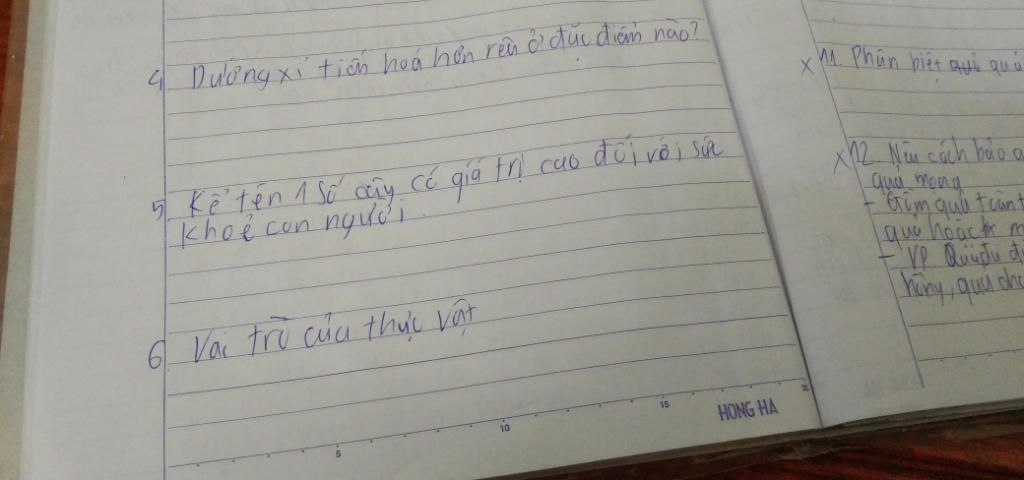 4 Dương xỉ tiến hoá hơn rêu ở đặc điểm nào?
5 Kể tên 1 số cây có giá trị cao đối với sức
khoẻ con người.
6 Vai trò của thực vật
5 10 15
HONG HA
x 11 Phân biệt quả
x 12 Nêu cách bảo
quả mọng
-
quả hoặc
- VD
hồng, quả